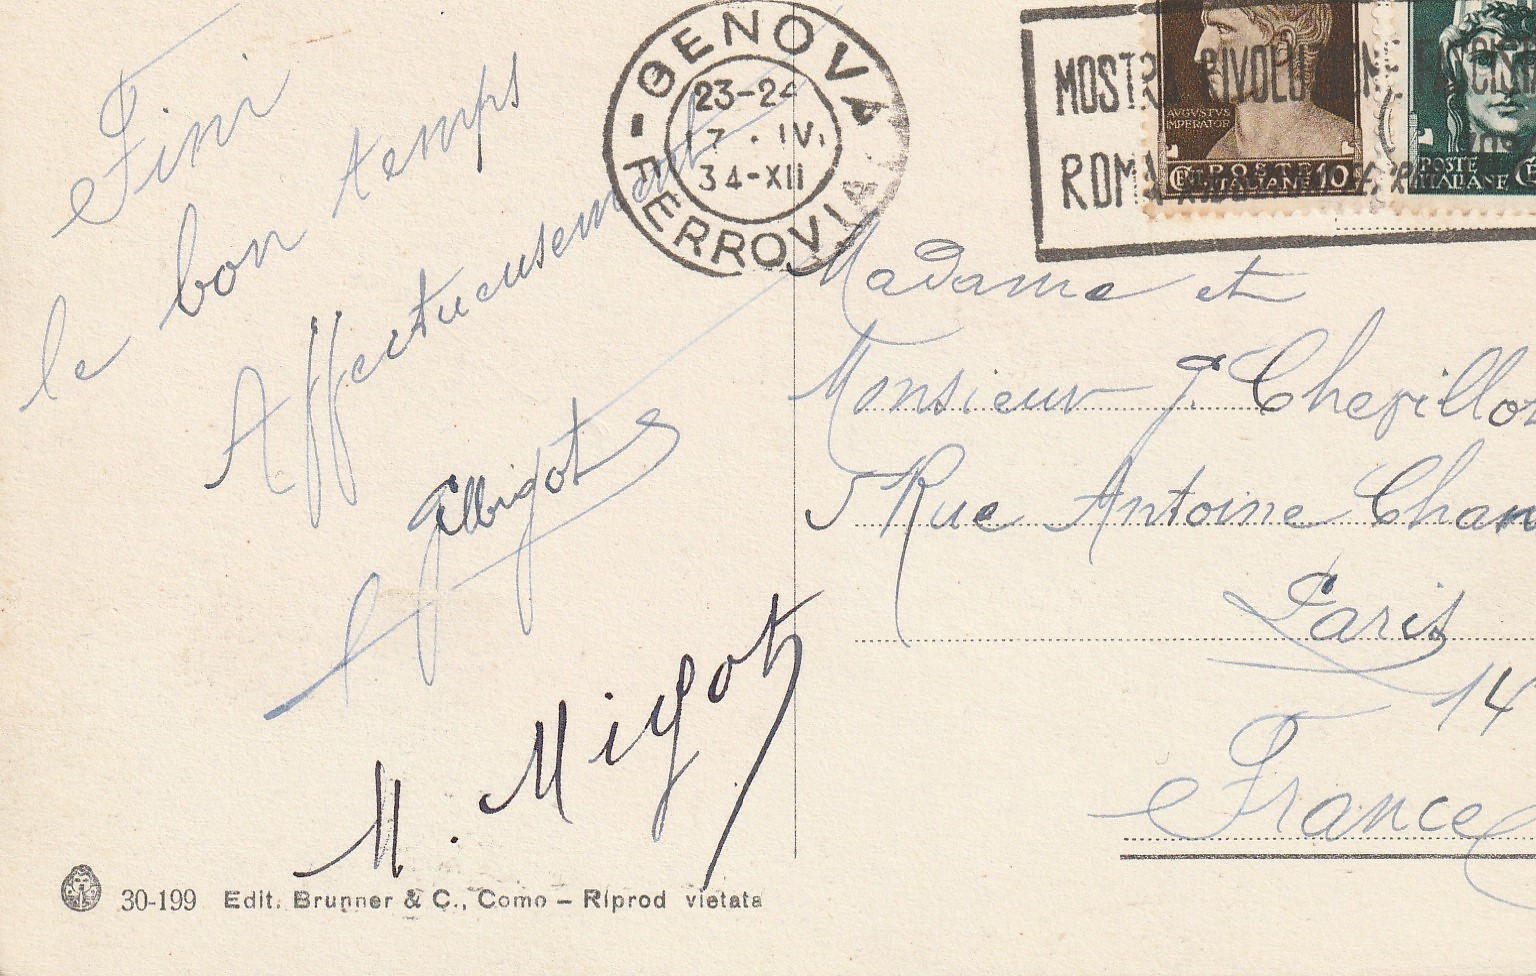 GENOVA
FERROVIA
23-24
17 . IV.
34-XII
MOSTRA RIVOLUZIONE FASCISTA
ROMA
AVGVSTVS
IMPERATOR
POSTE
ITALIANE 10
POSTE
ITALIANE
Fini
le bon temps
Affectueusement
M. Migot
Madame et
Monsieur J. Chevillot
5 Rue Antoine Chan
Paris
14
France
30-199 Edit. Brunner & C., Como – Riprod vietata